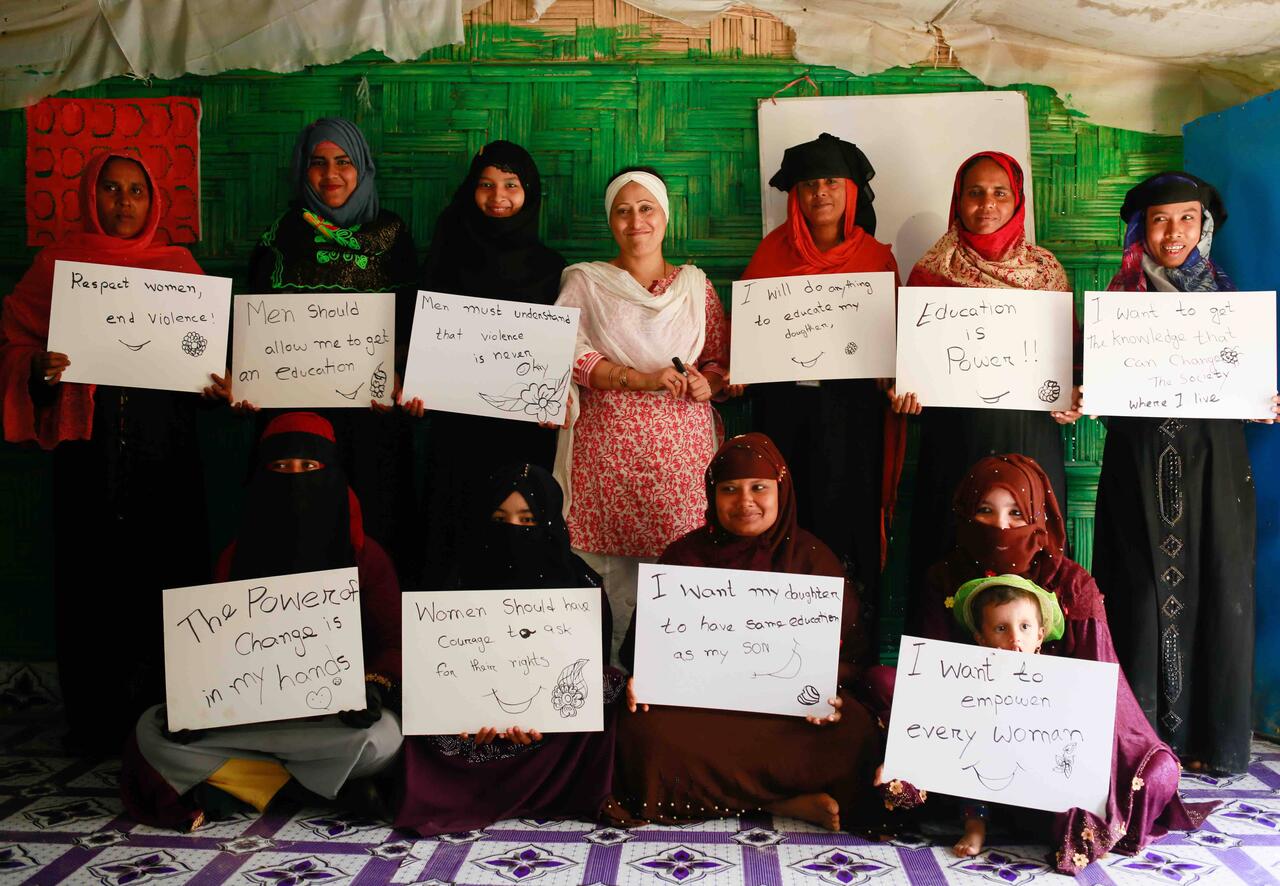 Respect women,
end violence!
Men should
allow me to get
an education
Men must understand
that violence
is never
okay
I will do anything
to educate my
doughter,
Education
is
Power!!
I want to get
The knowledge that
can Change
The Society
where I live
The Power of
Change is
in my hands!
Women Should have
Courage to ask
for their rights
I want my doughter
to have same education
as my SON
I want to
empower
every woman